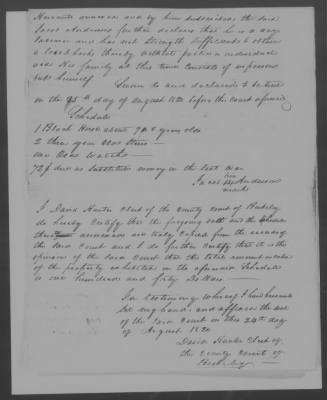 thereunto annexed and by him subscribed the said
Jacob Anderson further declares that he is a
and has not Strength Sufficient to obtain
a livelihood thereby without
aid His family at this time consists of no person
but himself
Sworn to and declared to be true
on the 25th day of August 1820 before the court aforesaid
Schedule
1 Black Horse about 7 or 8 years old
2 three year old
One Old Watch
72 $ due as Substitute money in the last War
his
Jacob Anderson
mark
I David Hunter Clerk of the County Court of Berkeley
do hereby Certify that the foregoing oath and the Schedule
annexed are truly copied from the records of
the said Court and I do further certify that it is the
opinion of the said Court that the total amount in value
of the property exhibited in the aforesaid Schedule
is one hundred and forty Dollars
In testimony whereof I have hereunto
set my hand and affixed the seal
of the said Court on this 26th day
of August 1820
David Hunter Clerk of
the County Court of
Berkeley